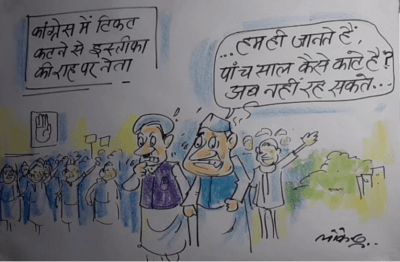 कांग्रेस में टिकट
कटने से इस्तीफा
की राह पर नेता
...हम ही जानते हैं
पाँच साल कैसे काटे है?
अब नहीं रह सकते...